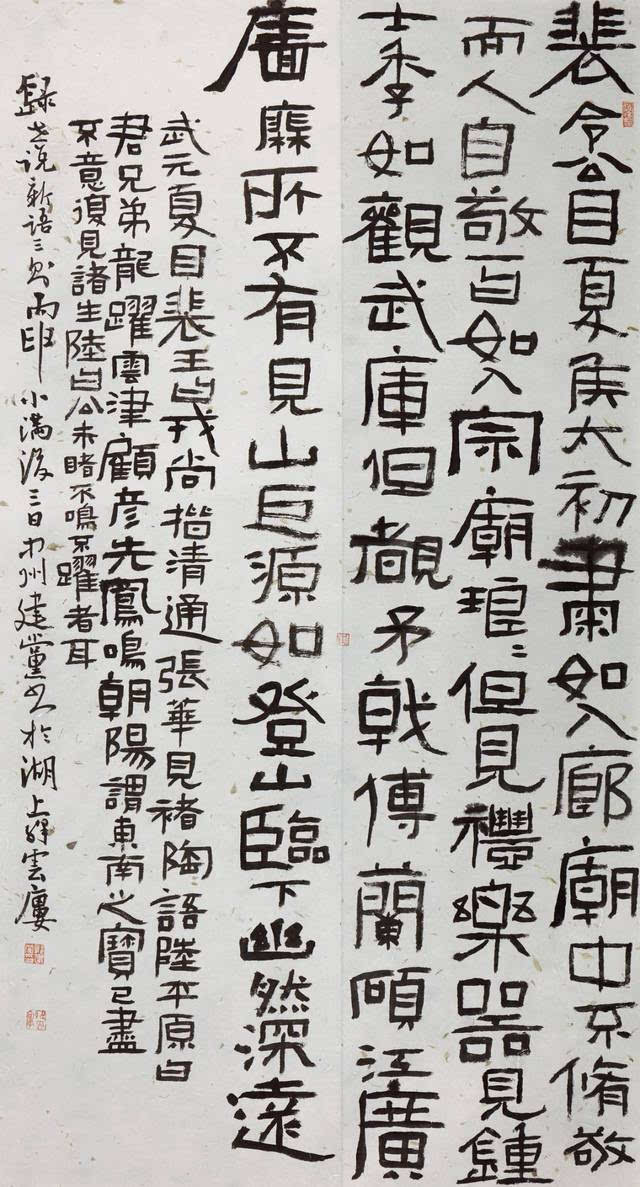 裴令公目夏侯太初肅如入廊廟中不脩敬
而人自敬一曰如入宗廟琅〻但見禮樂器見鍾
士季如觀武庫但覩矛戟傅蘭碩江廣
廧靡所不有見山巨源如登山臨下幽然深遠
武元夏目裴王曰戎尚楷清通張華見褚陶語陸平原曰
君兄弟龍躍雲津顧彥先鳳鳴朝陽謂東南之寶已盡
不意復見諸生陸曰公未睹不鳴不躍者耳
錄世说新语三则丙申小满後三日中州建黨书於湖上雲廔